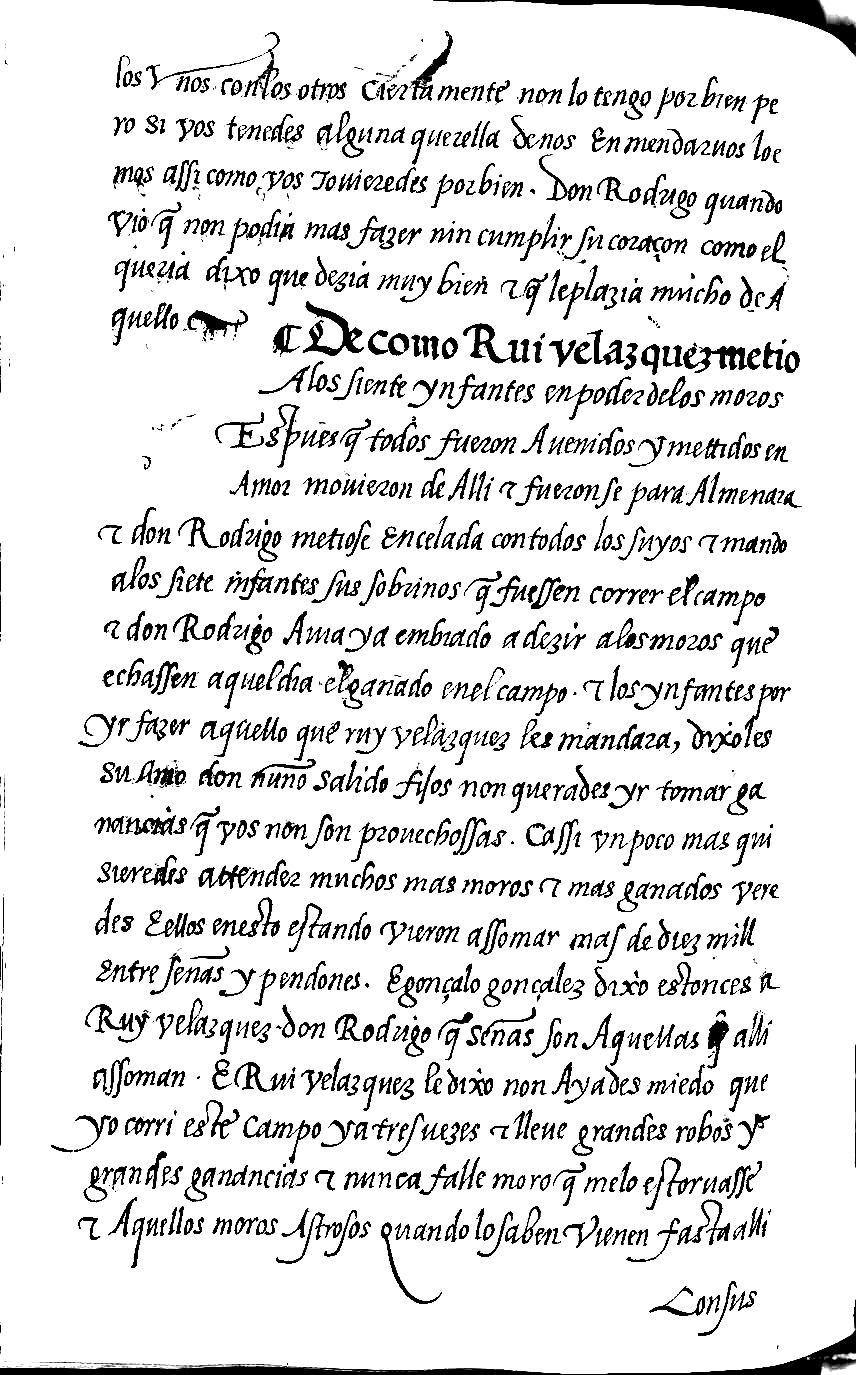 los Vnos con los otros Ciertamente non lo tengo por bien pe
ro si vos tenedes alguna querella de nos Enmendaruos loe
mos assi como vos touieredes por bien. Don Rodrigo quando
vio q̃ non podia mas fazer nin cumplir su coraçon como el
queria dixo que dezia muy bien τ q̃ le plazia mucho de A
quello
¶ De como Rui velazquez metio
A los siente ynfantes en poder de los moros
Espues q̃ todos fueron Auenidos y mettidos en
Amor mouieron de Alli τ fueronse para Almenara
τ don Rodrigo metiose Encelada con todos los suyos τ mando
a los siete infantes sus sobrinos q̃ fuessen correr el campo
τ don Rodrigo Auia ya embiado a dezir a los moros que
echassen aquel dia el ganado en el campo. τ los ynfantes por
yr fazer aquello que ruy velazquez les mandara, dixoles
su Amo don nuño salido fijos non querades yr tomar ga
nancias q̃ vos non son prouechossas. Ca ssi vn poco mas qui
sieredes attender muchos mas moros τ mas ganados vere
des E ellos en esto estando vieron assomar mas de diez mill
Entre señas y pendones. E gonçalo gonçalez dixo estonces a
Ruy velazquez don Rodrigo q̃ señas son Aquellas q̃ alli
assoman. E Rui velazquez le dixo non Ayades miedo que
yo corri este campo ya tres vezes τ lleue grandes robos y
grandes ganancias τ nunca falle moro q̃ me lo estoruasse
τ Aquellos moros Astrosos quando lo saben Vienen fasta alli
Con sus